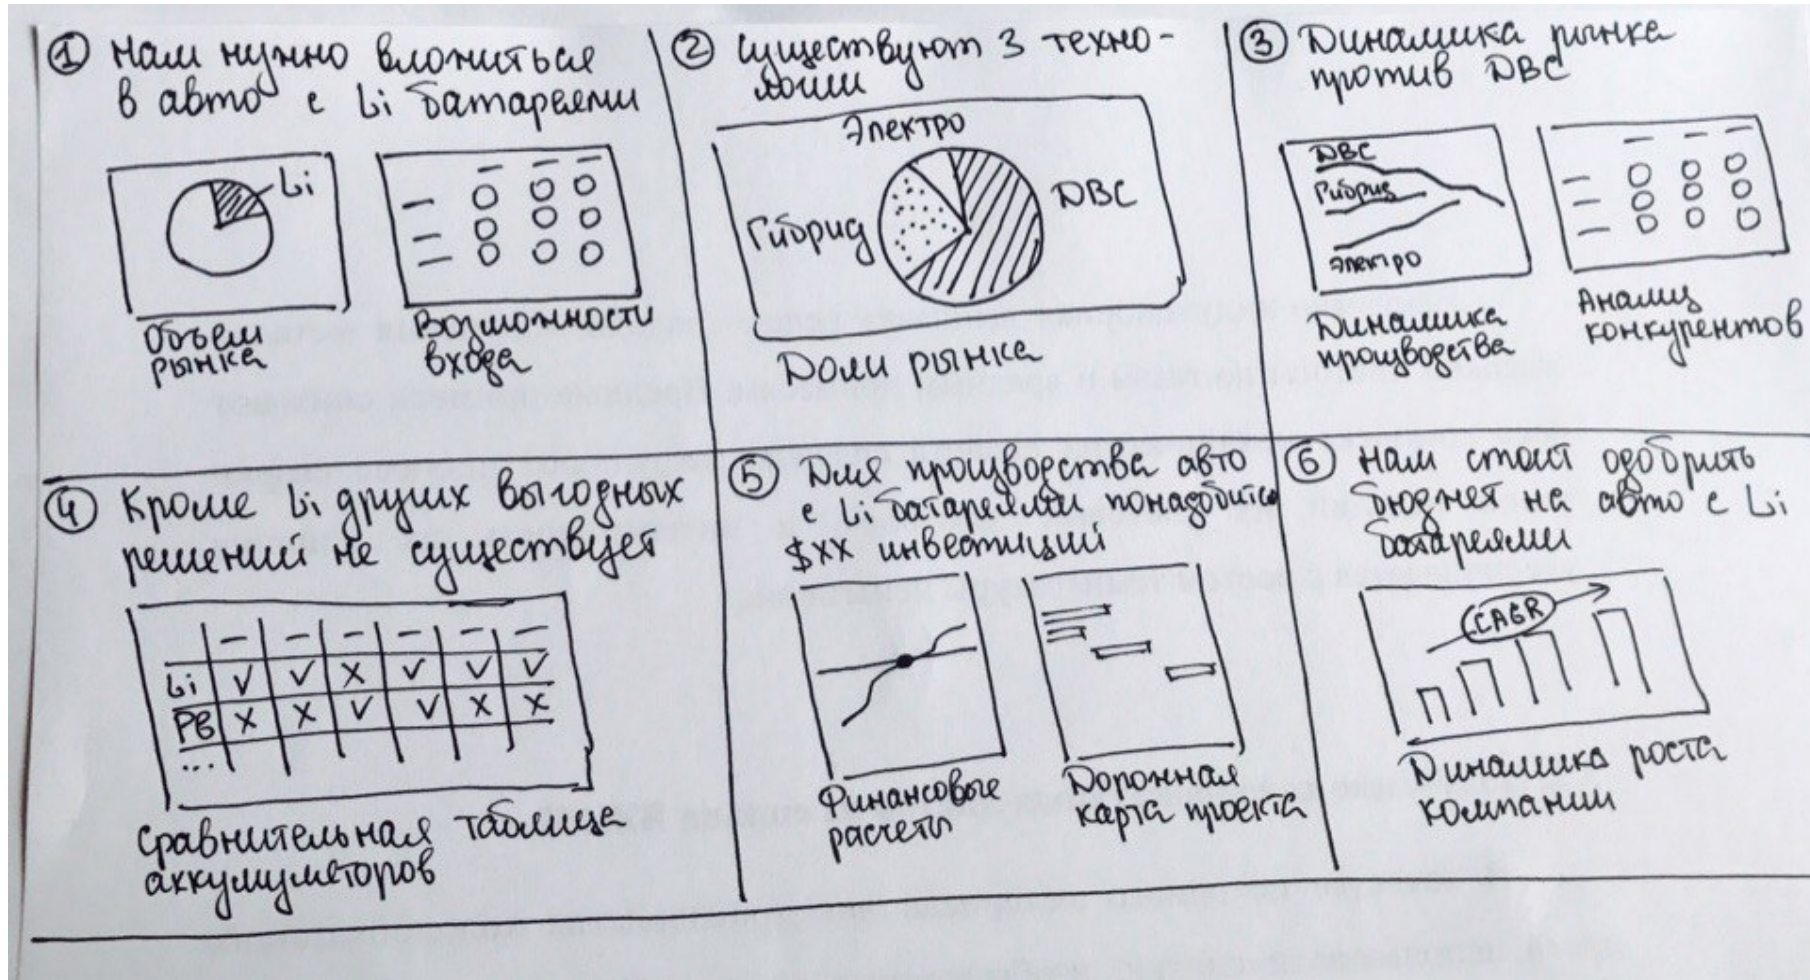 1 Нам нужно вложиться
в авто с Li батареями
Li
Объем
рынка
Возможности
входа
2 Существуют 3 техно-
логии
Электро
ДВС
Гибрид
Доли рынка
3 Динамика рынка
против ДВС
ДВС
Гибрид
Электро
Динамика
производства
Анализ
конкурентов
4 Кроме Li других выгодных
решений не существует
Li V V X V V V
PB X X V V X X
...
Сравнительная таблица
аккумуляторов
5 Для производства авто
с Li батареями понадобится
$XX инвестиций
Финансовые
расчеты
Дорожная
карта проекта
6 Нам стоит одобрить
бюджет на авто с Li
батареями
CAGR
Динамика роста
компании